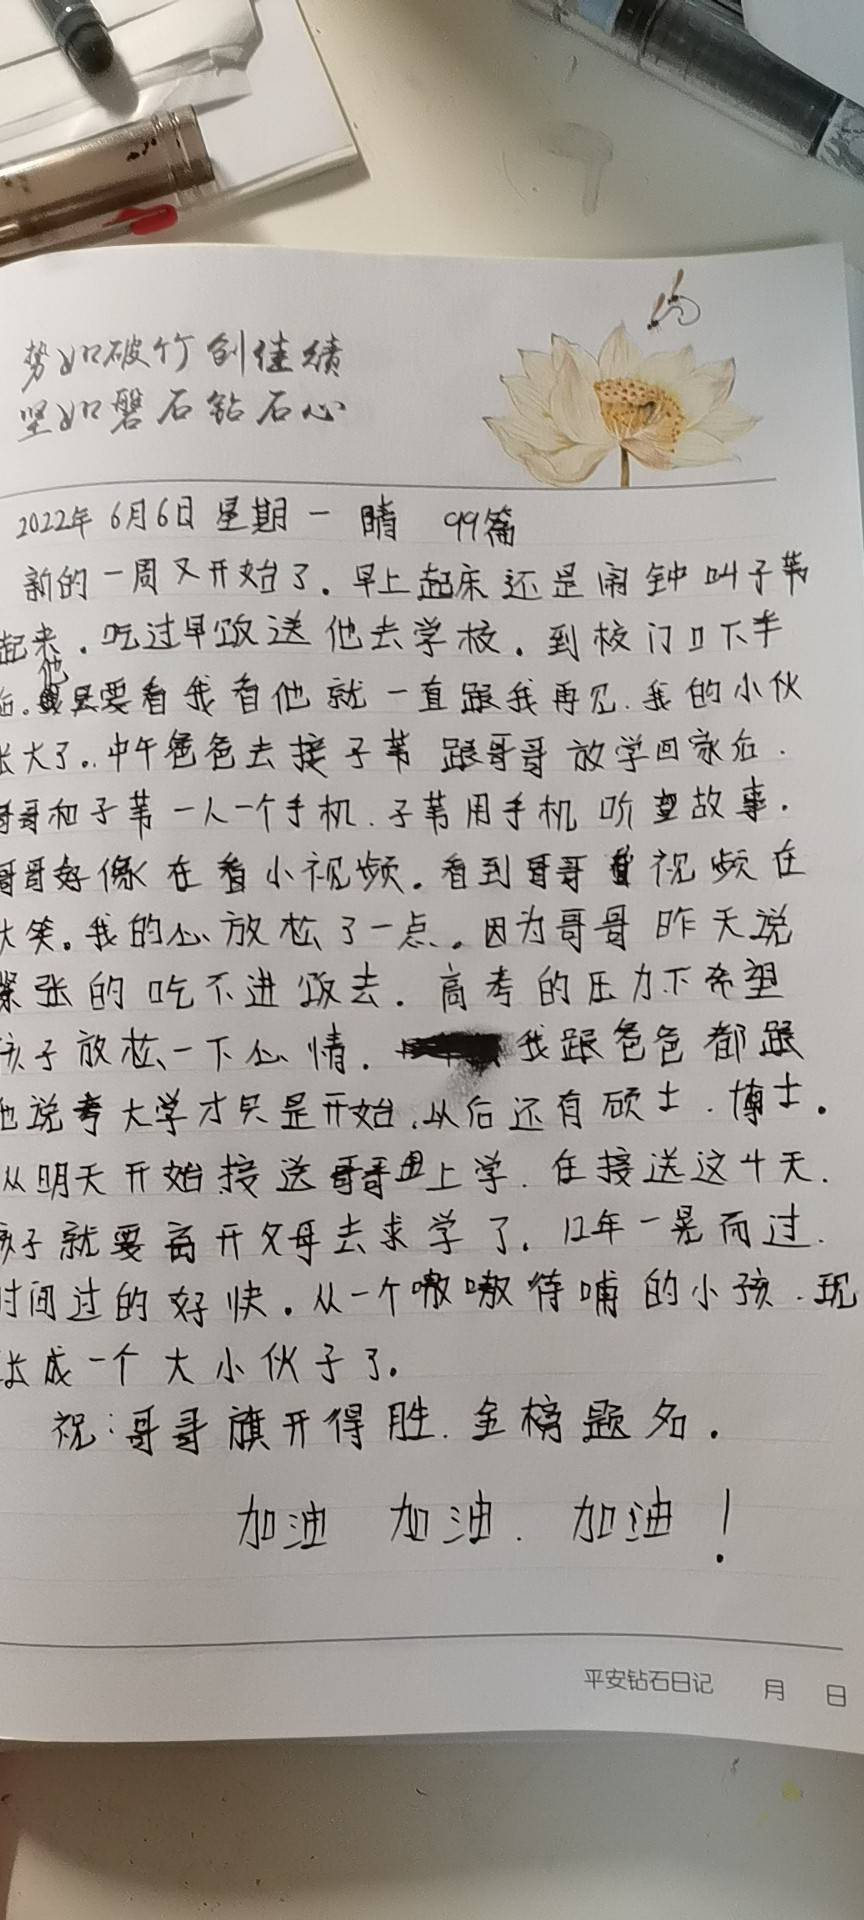 势如破竹创佳绩
坚如磐石钻石心
2022年6月6日 星期一 晴 99篇
新的一周又开始了.早上起床还是闹钟叫子苇
起来.吃过早饭送他去学校.到校门口下车
后.他只要看我看他就一直跟我再见.我的小伙
长大了.中午爸爸去接子苇跟哥哥放学回家后.
哥哥和子苇一人一个手机.子苇用手机听故事.
哥哥好像在看小视频.看到哥哥看视频在
大笑.我的心放松了一点.因为哥哥昨天说
紧张的吃不进饭去.高考的压力下希望
孩子放松一下心情.我跟爸爸都跟
他说考大学才只是开始.以后还有硕士.博士.
从明天开始接送哥哥上学.在接送这4天.
孩子就要离开父母去求学了.12年一晃而过.
时间过的好快.从一个嗷嗷待哺的小孩.现
长成一个大小伙子了.
祝:哥哥旗开得胜.金榜题名.
加油 加油.加油!
平安钻石日记 月 日